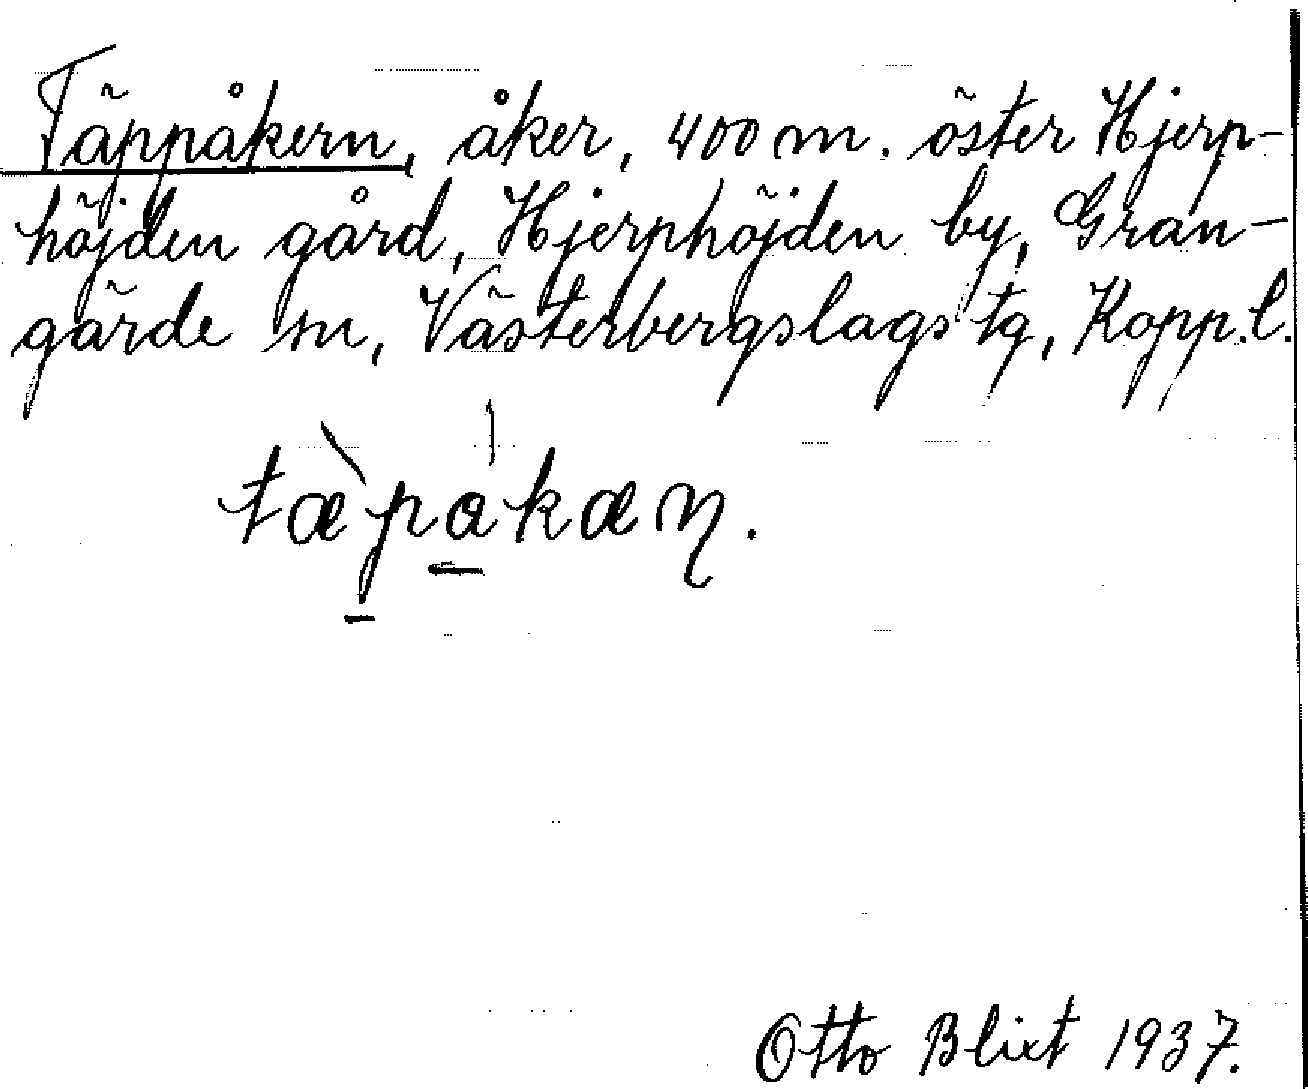 Täppåkern, åker, 400 m. öster Hjerp-
höjden gård, Hjerphöjden by, Gran-
gärde sn, Västerbergslags tg, Kopp.l.
tæ̀pa̍kæɳ.
Otto Blixt 1937.